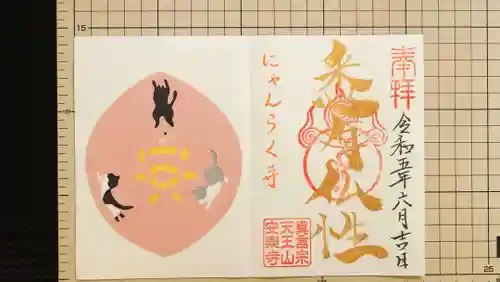 奉拝
令和五年六月吉日
悉有仏性
にゃんらく寺
真言宗
天王山
安楽寺
15
25